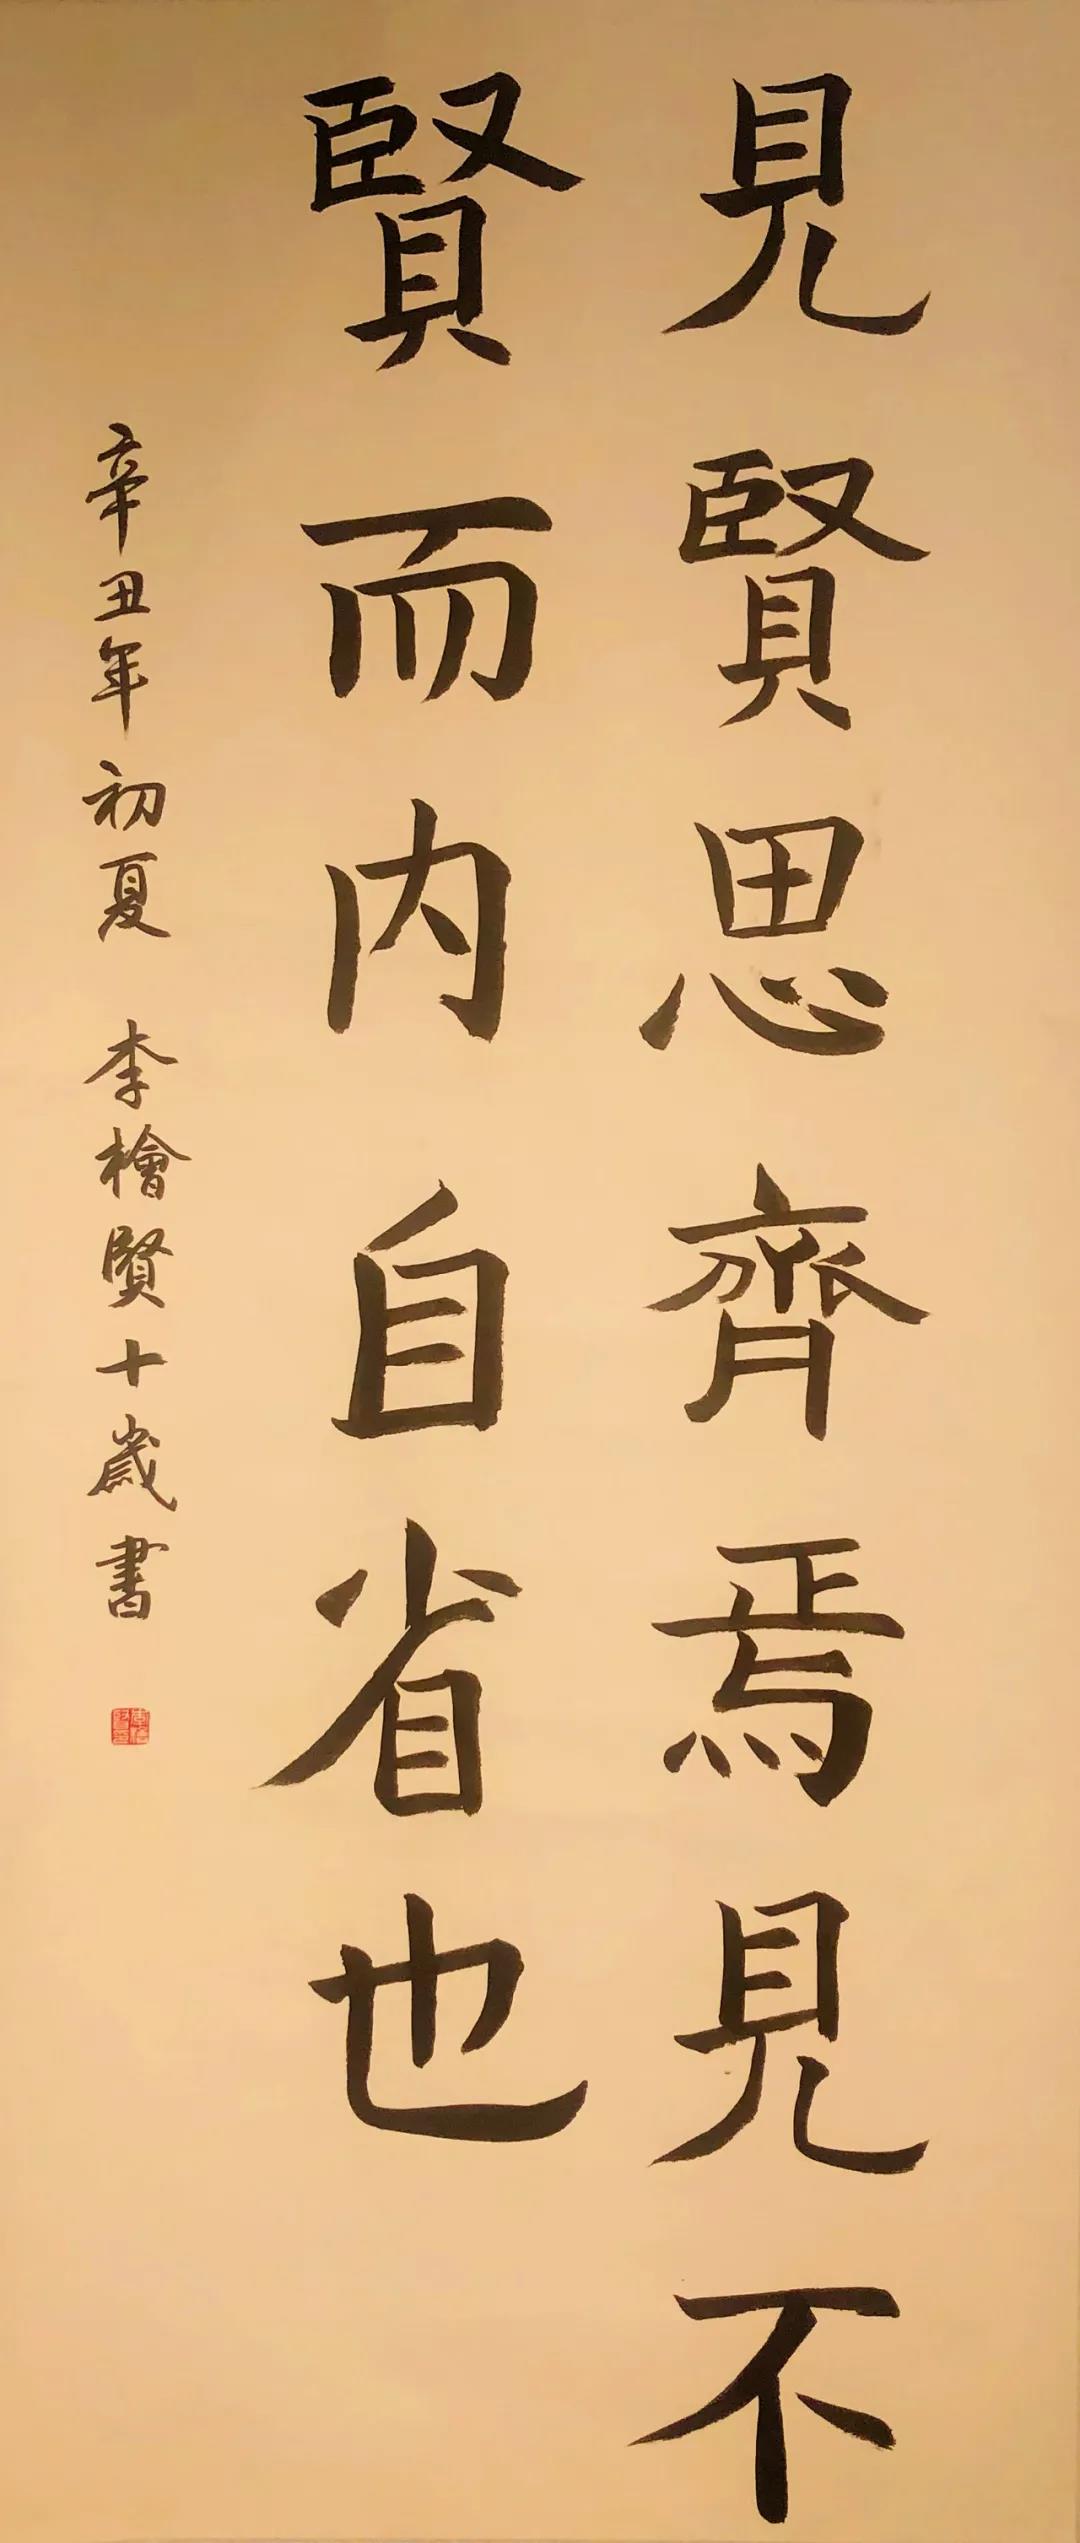 見賢思齊焉見不
賢而内自省也
辛丑年初夏 李檜賢十歲書